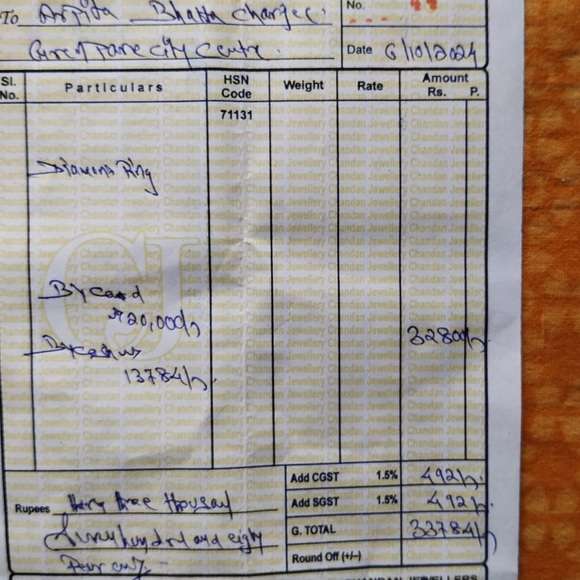 To Arpita Bhatta Charjee.
No.
City Centre.
Date 6/10/2024
Sl. No. Particulars HSN Code Weight Rate Amount Rs. P.
71131
Diamond Ring
By Card
₹20,000/-
32800/-
By cash
13784/-
Add CGST 1.5% 492/-
Add SGST 1.5% 492/-
Rupees thirty three thousand
G. TOTAL 33784/-
Seven hundred and eighty
Round Off (+/–)
Four only -
CHANDAN JEWELLERS